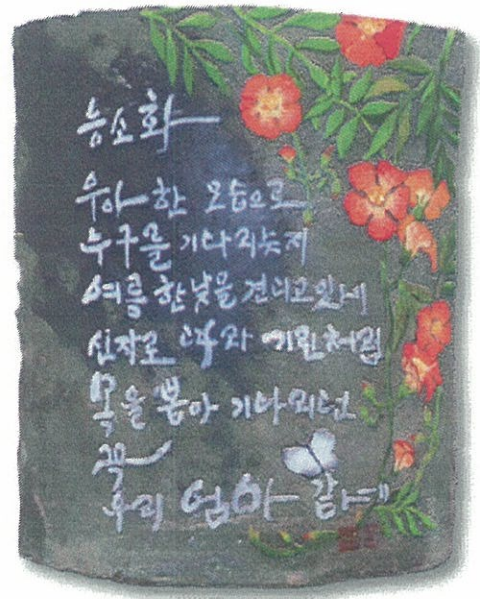 능소화
우아한 모습으로
누구를 기다리는지
여름 한낮을 견디고 있네
기린처럼
목을 뽑아 기다리던
꼭
우리 엄마 같네